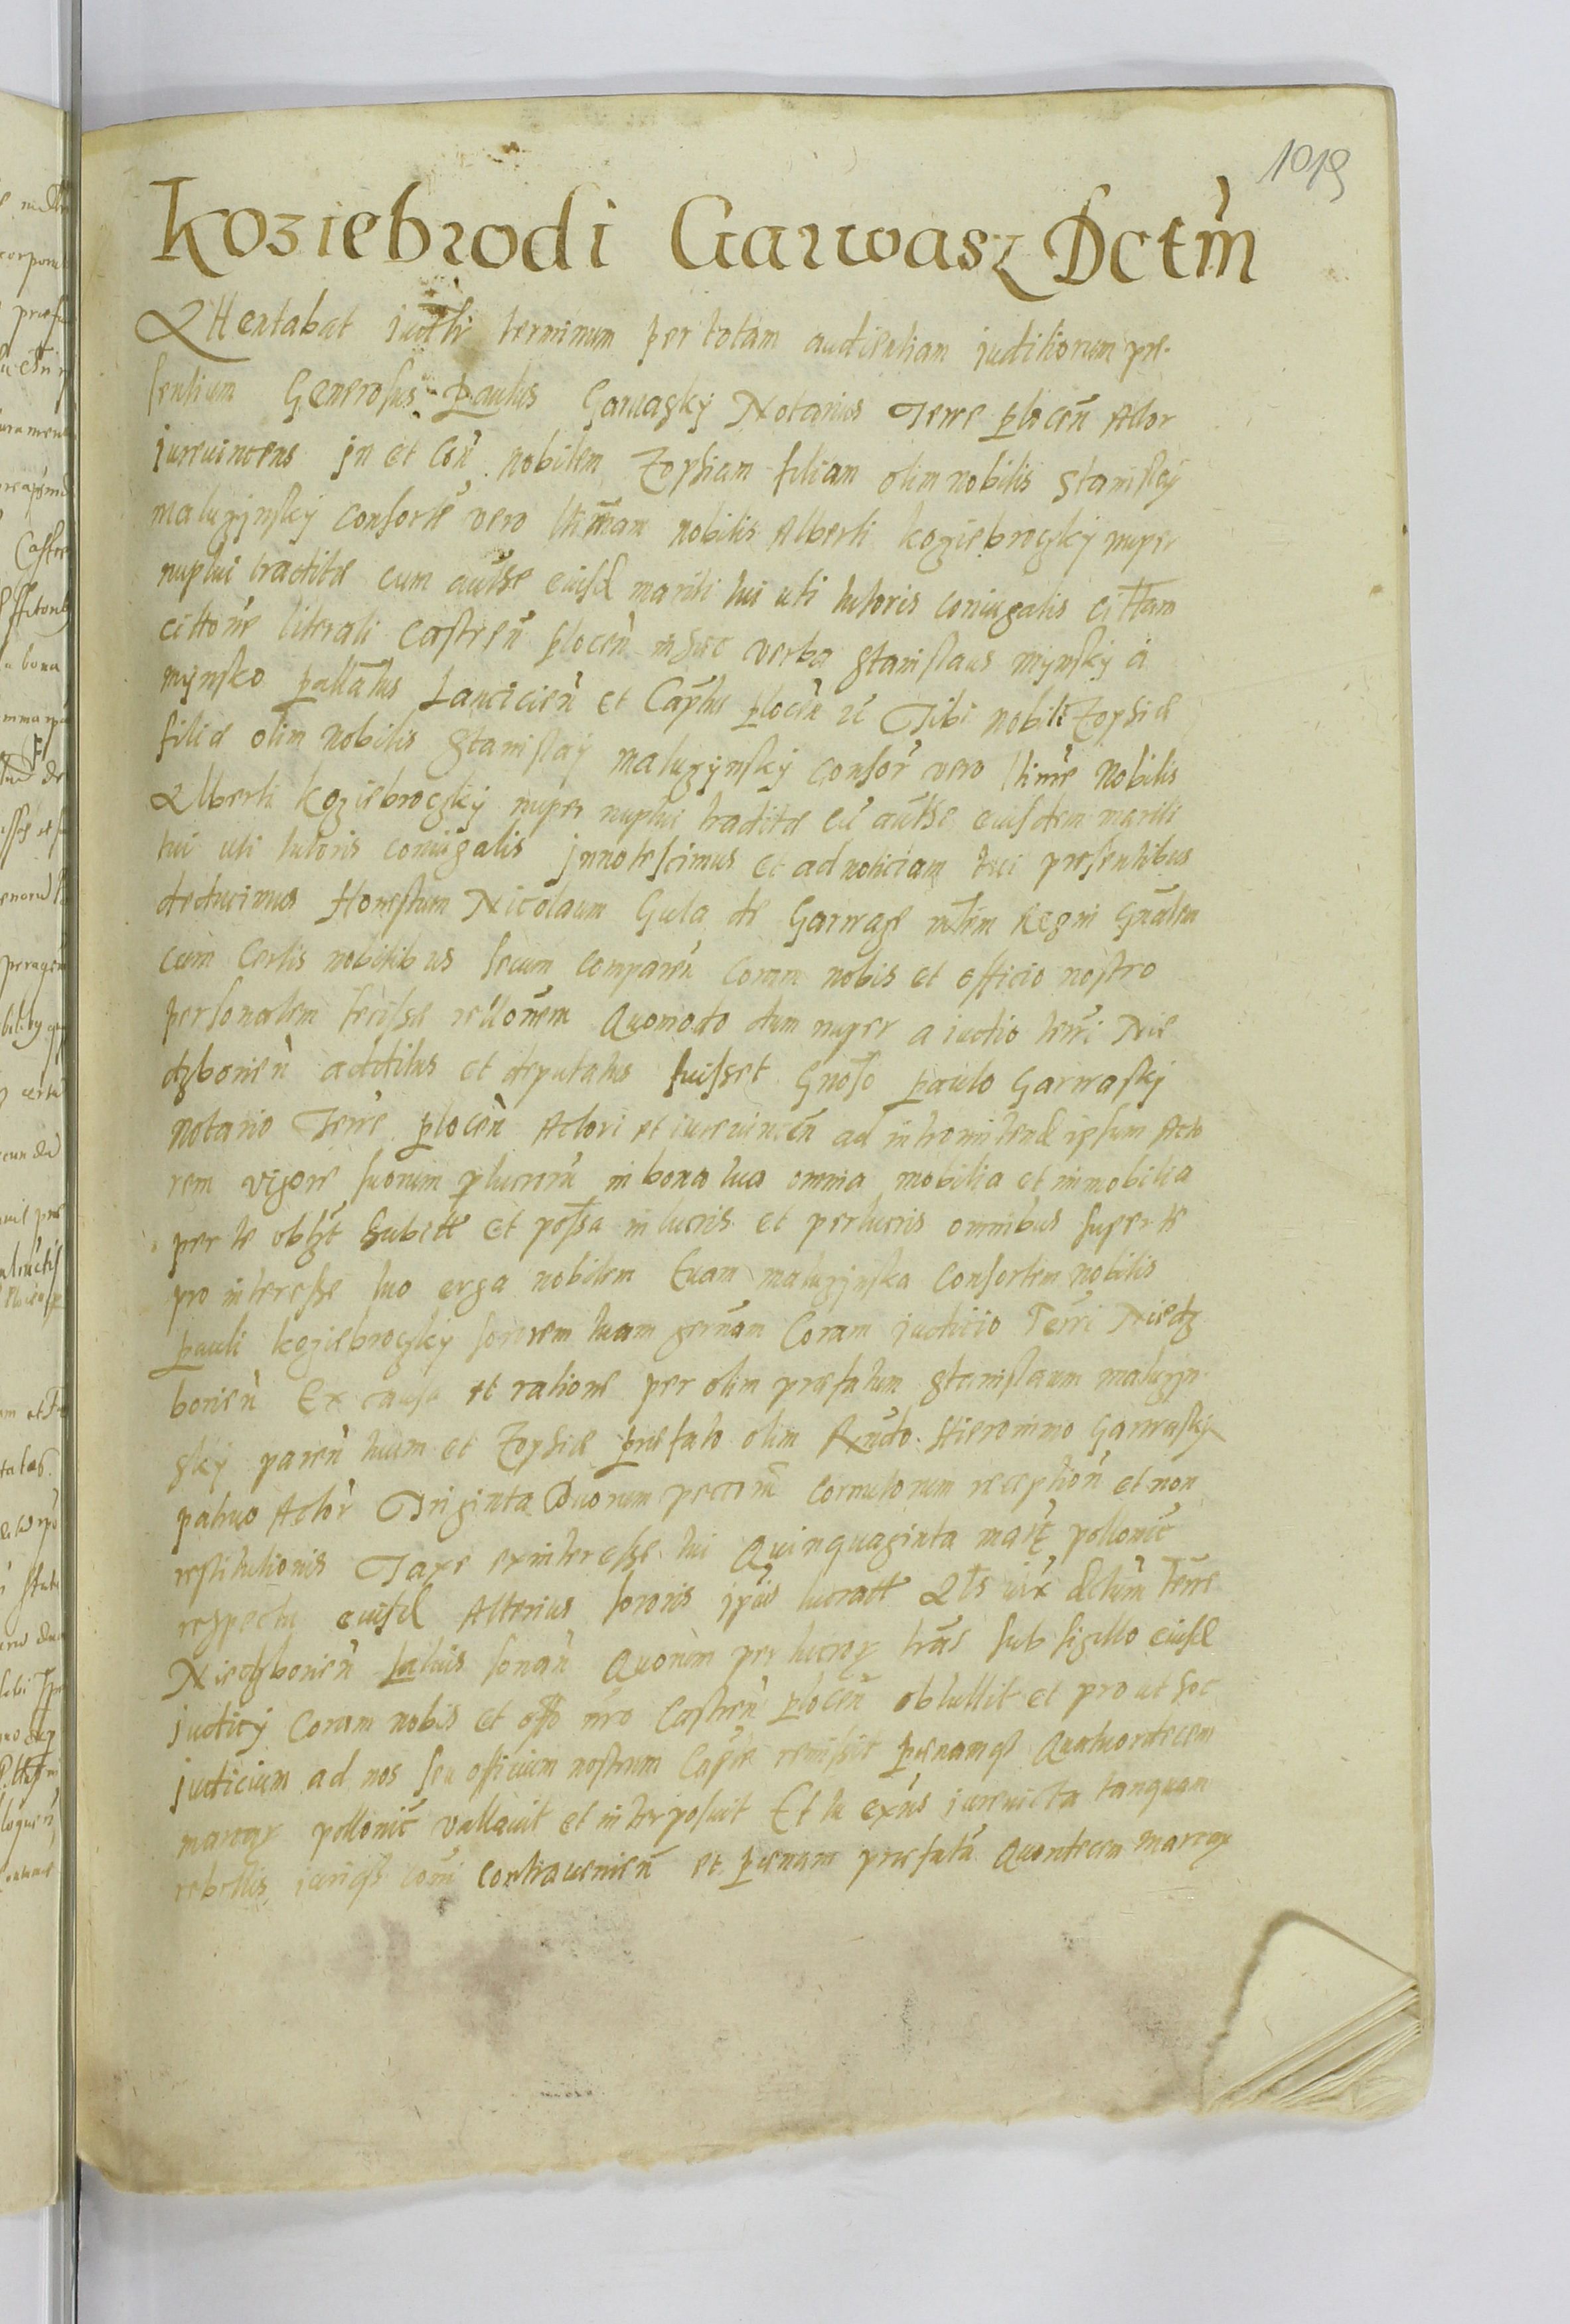 1019
Koziebrodi Garwasz Dctm̀
Attentabat iudtr terminum per totam audientiam iuditiorum pre-
sentium Generosus Paulus Garwasky Notarius Terre plocen̄ Actor
jurevincens in et con̄ nobilem Zophiam filiam olim nobilis Stanislai
maluzynsky consorte vero ltimam nobilis Alberti koziebroczky nuper
nuptui tradite cum autse eiusd mariti tui uti tutoris coniugalis cittam
cittone literali castren̄ plocen̄ in hec verba Stanislaus mynsky a
mynsko pallatus Lancicien̄ et Captus plocen̄ Tibi nobili Zophie
filie olim nobilis Stanislai maluzynsky consor vero ltime nobilis
Alberti koziebroczky nuper nuptui tradite cu autse eiusdem mariti
tui uti tutoris coniugalis innotescimus et ad noticiam tui presentibus
deducimus Honestum Nicolaum Gula de Garwaze mtem Regni Gnalem
cum certis nobilibus secum comparen coram nobis et officio nostro
personalem fecisse rellonem Quomodo dum nuper a iudio terri Nie
dzbonien̄ additus et deputatus fuisset Gnoso paulo Garwasky
notario Terre plocen̄ Actori et iurevincen ad intromittend ipsum Acto
rem vigore suorum plucroru in bona tua omnia mobilia et immobilia
per te obtzt habette et possa in lucris et perlucris omnibus super te
pro interesse tuo erga nobilem Evam maluzynska consortem nobilis
pauli koziebroczky sororem tuam german Coram iudicio Terri Niedz
bonien̄ Ex causa et ratione per olim prefatum Stanislaum maluzyn-
sky paren tuum et Zophie prefato olim Rndo Hieronimo Garwasky
patruo Actor Triginta Duorum pecoru cornutorum reception et non
restitutionis Taxe ex interesse tui Quinquaginta marc pollonic
respectu eiusd Alterius sororis ipius lucratt Ats iux dctum Terre
Niedzbonien̄ latius sonan Quorum per lucror tras sub sigillo eiusd
iudicy Coram nobis et offo nro Castren̄ plocen̄ obtullit et prout hoc
iudicium ad nos seu officium nostrum Capie remissit penamq Quatuordecem
marcar pollonic vallavit et interposuit Et tu exns iurevicta tanquam
rebellis iuriq comi contravenien̄ et penam prefatā Quordecem marcar